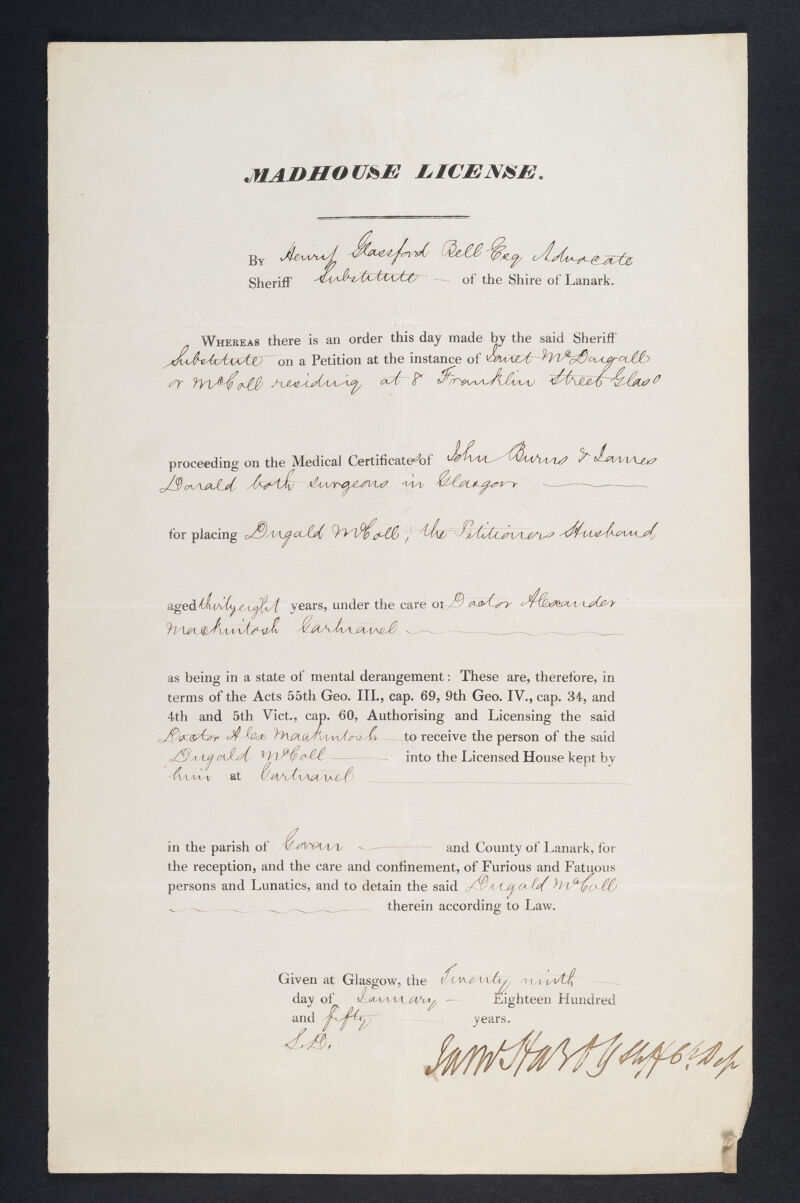 MADHOUSE LICENSE.
By Henry Glassford Bell Esq Advocate
Sheriff Substitute of the Shire of Lanark.
Whereas there is an order this day made by the said Sheriff
Substitute on a Petition at the instance of Janet McDougall
or McColl residing at 8 Franklin Street Glaso
proceeding on the Medical Certificates of John Burns & James
Donald both surgeons in Glasgow
for placing Dugald McColl, the Petitioners Husband
aged thirty eight years, under the care of Doctor Alexander
Mackintosh Gartnavel
as being in a state of mental derangement: These are, therefore, in
terms of the Acts 55th Geo. III., cap. 69, 9th Geo. IV., cap. 34, and
4th and 5th Vict., cap. 60, Authorising and Licensing the said
Doctor Alex Mackintosh to receive the person of the said
Dugald McColl into the Licensed House kept by
him at Gartnavel
in the parish of Govan and County of Lanark, for
the reception, and the care and confinement, of Furious and Fatuous
persons and Lunatics, and to detain the said Dugald McColl
therein according to Law.
Given at Glasgow, the Twenty ninth
day of January Eighteen Hundred
and fifty years.